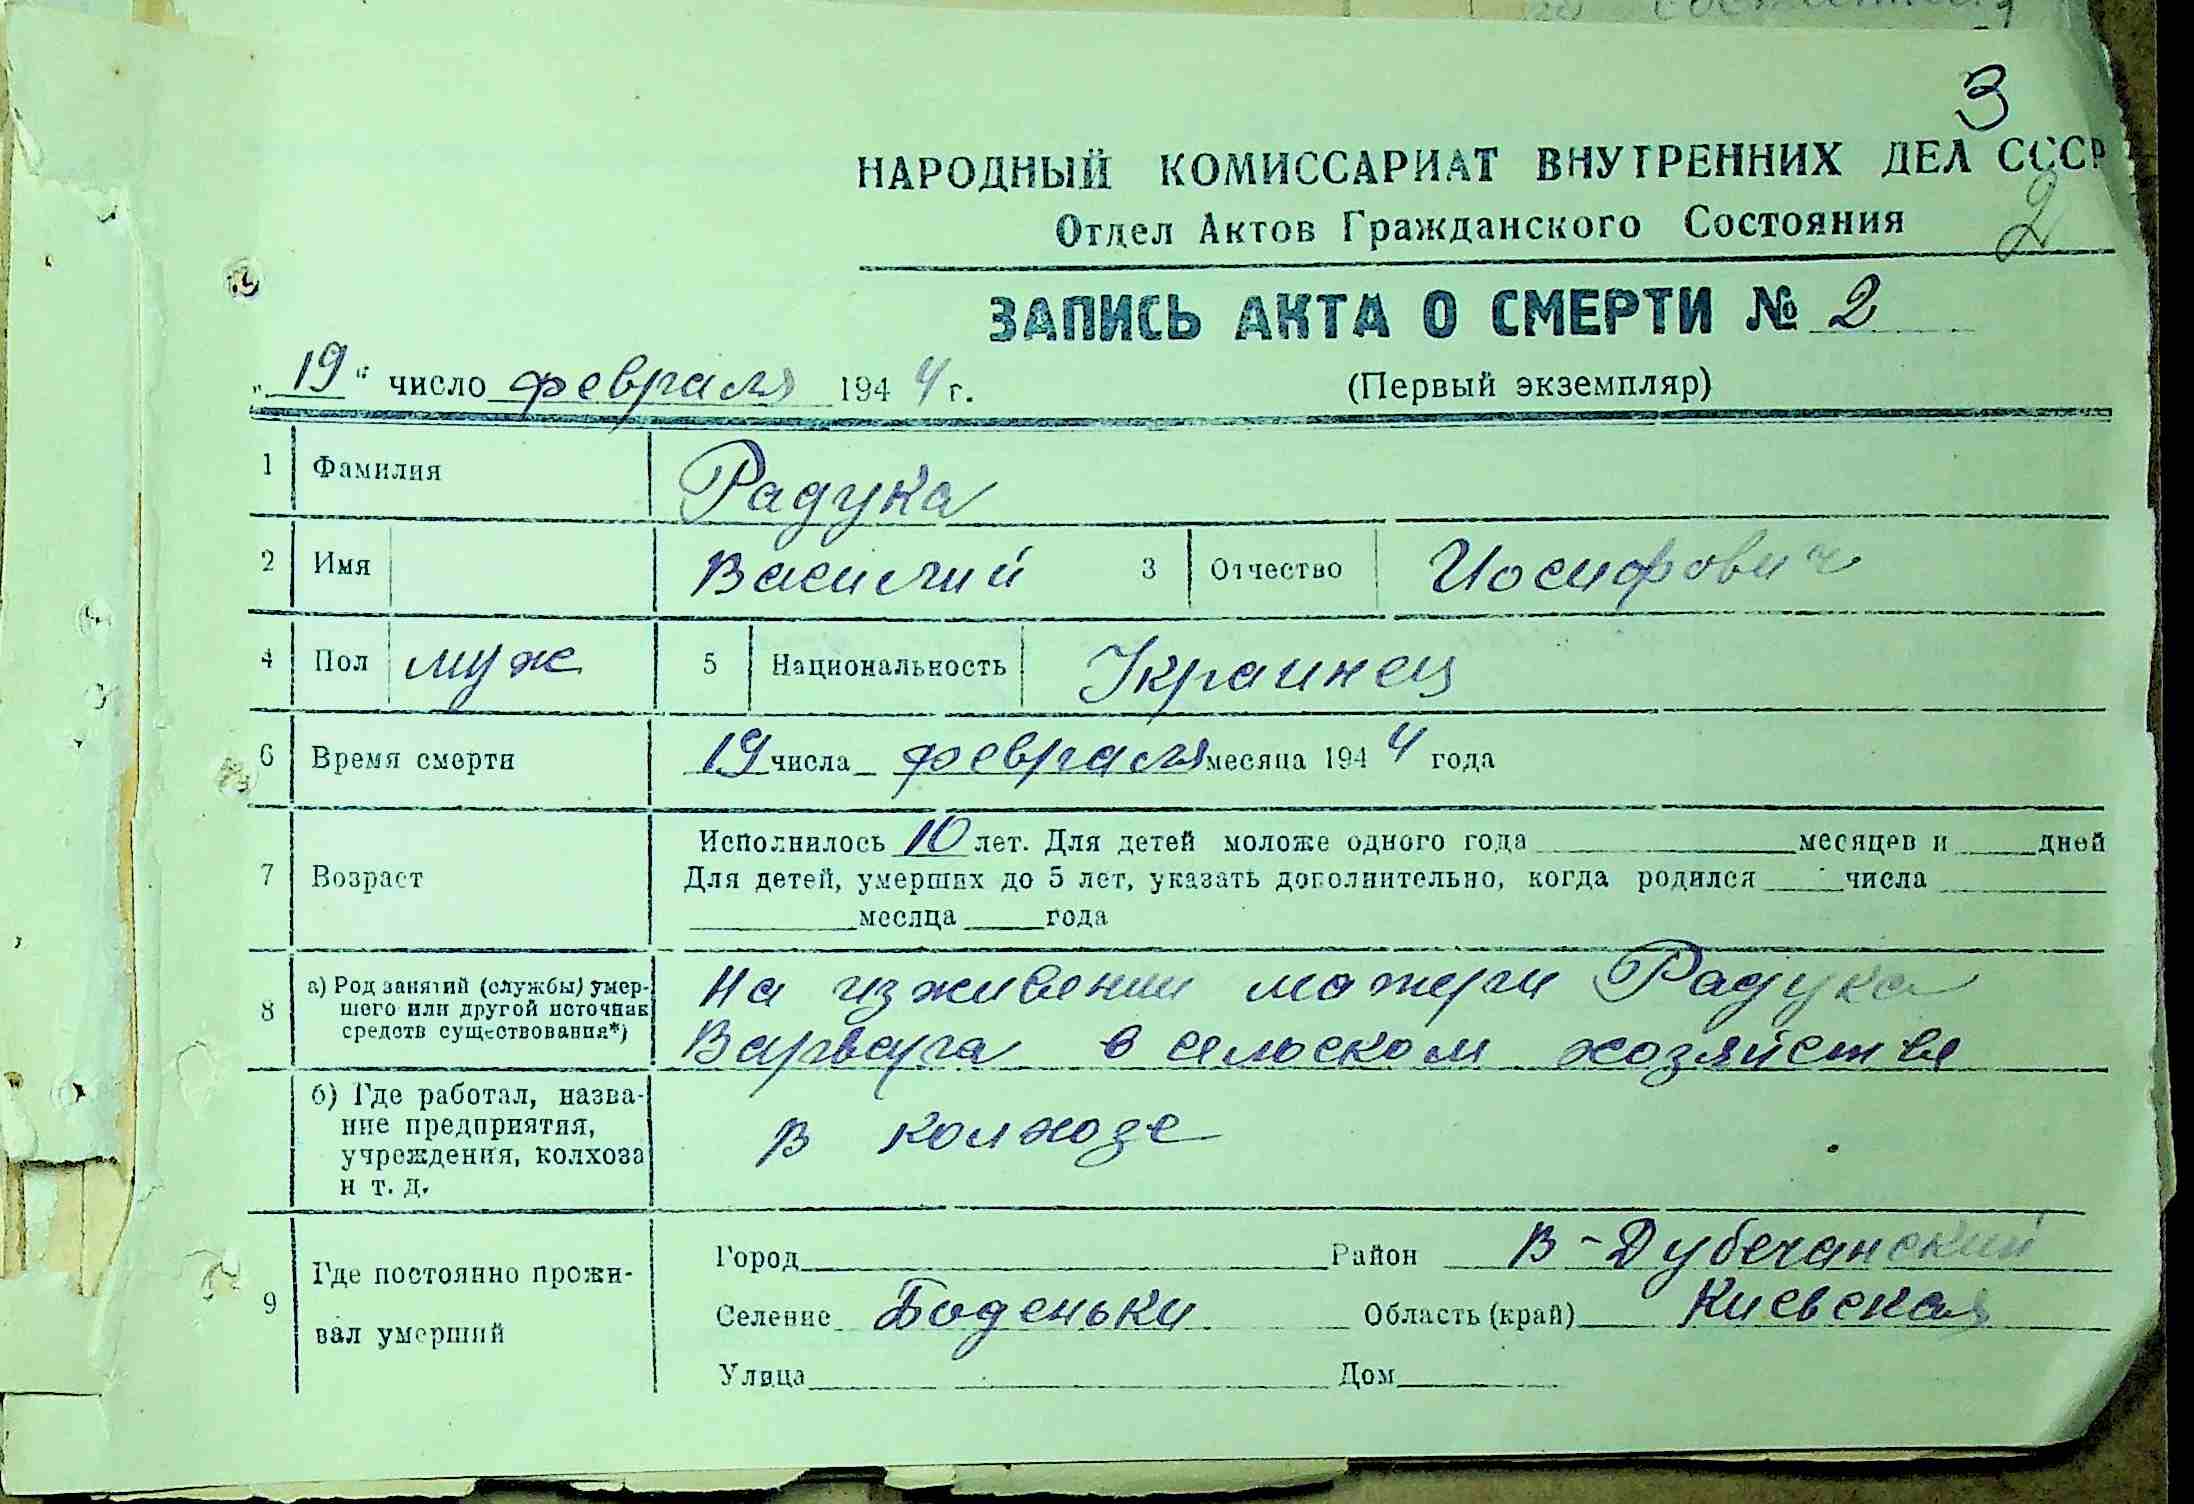 3
НАРОДНЫЙ КОМИССАРИАТ ВНУТРЕННИХ ДЕЛ СССР
Отдел Актов Гражданского Состояния
2
ЗАПИСЬ АКТА О СМЕРТИ № 2
„19“ число февраля 1944 г.
(Первый экземпляр)
1 Фамилия Радука
2 Имя Василий 3 Отчество Иосифович
4 Пол муж 5 Национальность Украинец
6 Время смерти 19 числа февраля месяца 1944 года
7 Возраст
Исполнилось 10 лет. Для детей моложе одного года месяцев и дней
Для детей, умерших до 5 лет, указать дополнительно, когда родился числа
месяца года
8
а) Род занятий (службы) умер-
шего или другой источник
средств существования*)
На изживении матери Радука
Варвара в сельском хозяйстве
б) Где работал, назва-
ние предприятия,
учреждения, колхоза
и т. д.
в колхозе
9
Где постоянно прожи-
вал умерший
Город Район В-Дубечанский
Селение Боденьки Область (край) Киевская
Улица Дом